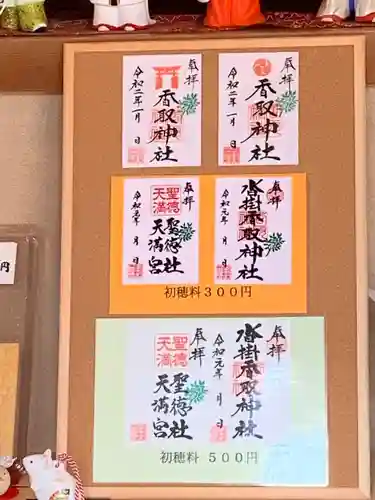 奉拝
香取神社
令和二年一月 日
奉拝
香取神社
令和二年一月 日
奉拝
聖徳
天満
聖徳社
天満宮
令和元年 月 日
奉拝
沓掛香取神社
令和元年 月 日
初穂料300円
奉拝
沓掛香取神社
令和元年 月 日
奉拝
聖徳
天満
聖徳社
天満宮
初穂料 500円
円